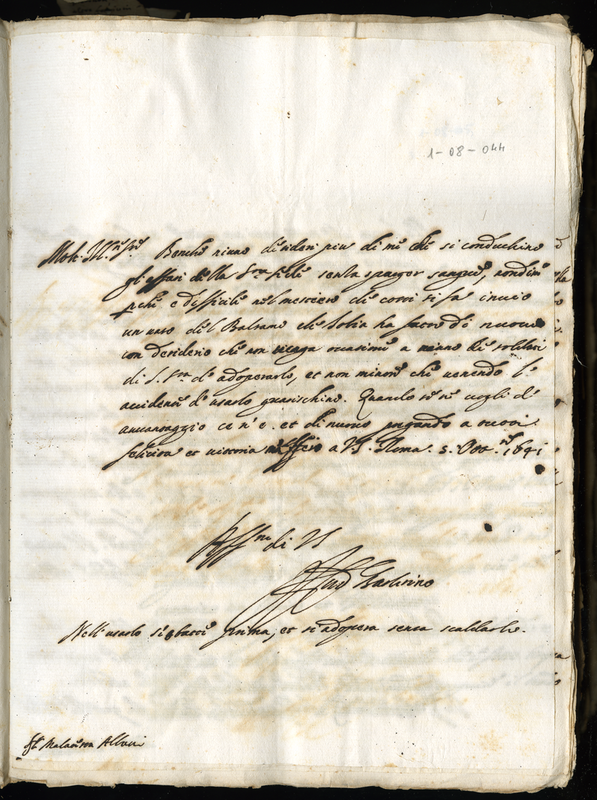 1-08-044
Molt. Ill.re S.re Benche niuno desideri piu di me che si conduchino
gl'affari della S.ra sede senza spargor sangue, nondim.o
perche e difficile nel mestiero che corri si fa invio
un vaso del Balsamo che Solia ha facto di nuovo
con desiderio che non venga occasione a niuno de soldati
di S. S.ra d' adoperarlo, et non minore che venendo l'
accidente d' usarlo guarischino. Quando se ne vogli d'
avvantaggio ce n'e. et di nuovo pregando a
felicita et vittoria m'offero a VS. Roma. 5. Ott.re 1641
Aff.mo di VS
Barberino
Nell'usarlo si sbatti prima, et si adopera senza scaldarlo.
Albani